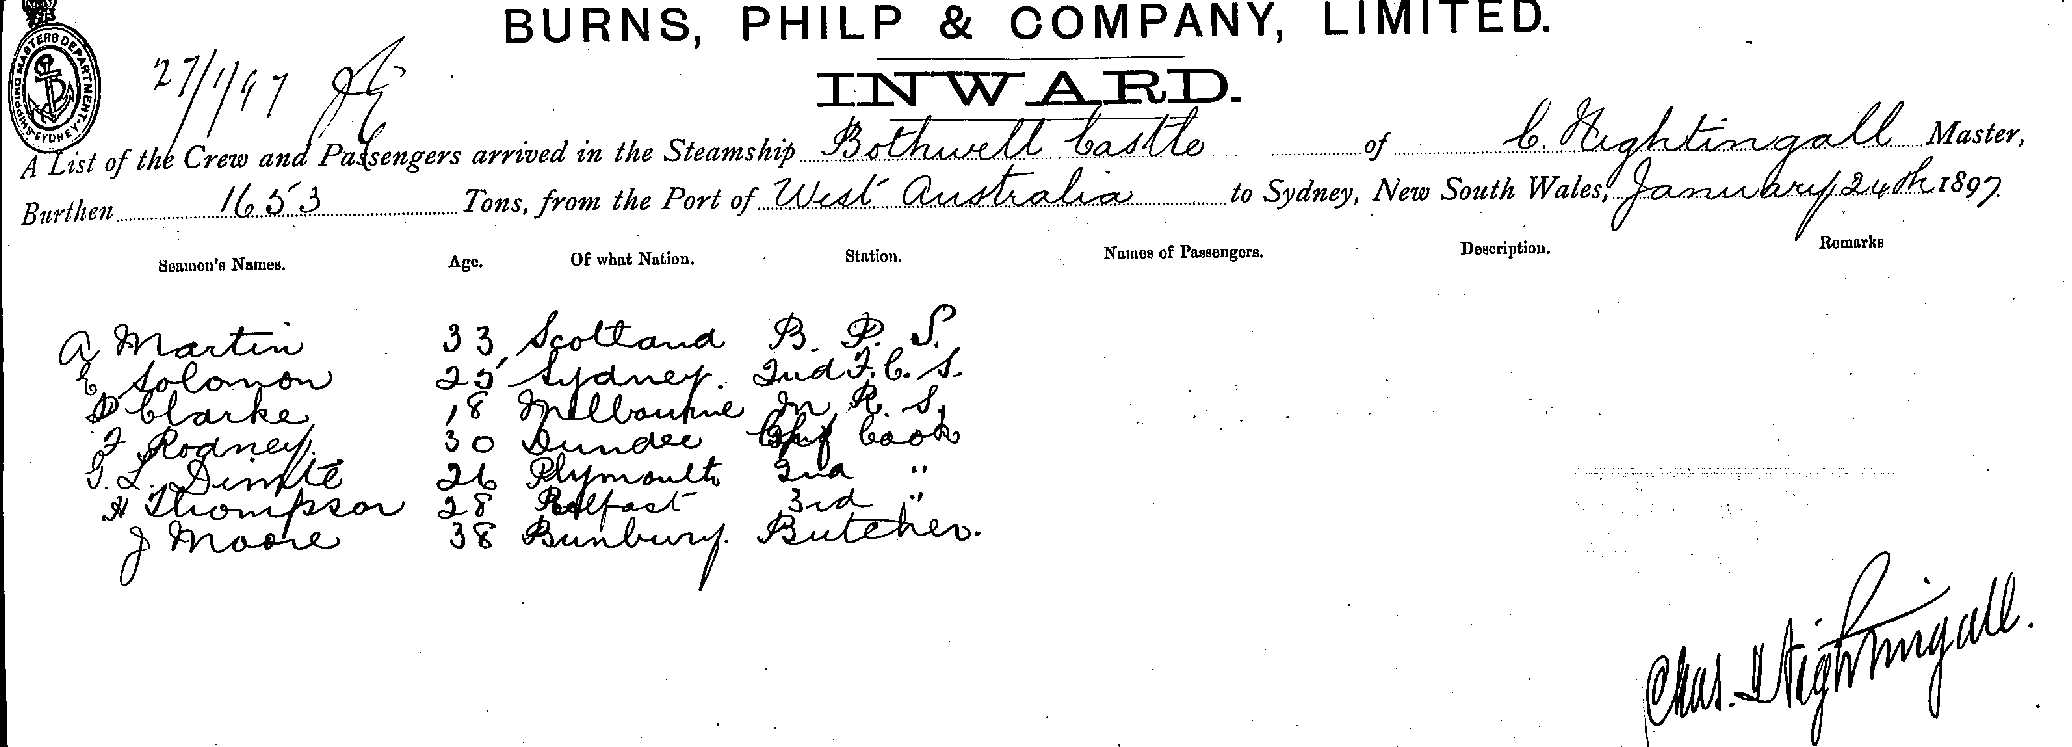 BURNS, PHILP & COMPANY, LIMITED.
INWARD.
SHIPPING MASTERS DEPARTMENT. SYDNEY
27/1/97
A List of the Crew and Passengers arrived in the Steamship Bothwell Castle of C. Nightingall Master,
Burthen 1653 Tons, from the Port of West Australia to Sydney, New South Wales, January 24th 1897.
Seamen's Names. Age. Of what Nation. Station. Names of Passengers. Description. Remarks
A Martin 33 Scotland B. P. S.
E Solomon 25 Sydney. 2nd F. C. S.
D Clarke 18 Melbourne M R. S.
F Rodney. 30 Dundee Chf Cook
G. L. 26 Plymouth 2nd "
H Thompson 28 Belfast 3rd "
J Moore 38 Bunbury. Butcher.
Chas. Nightingall.